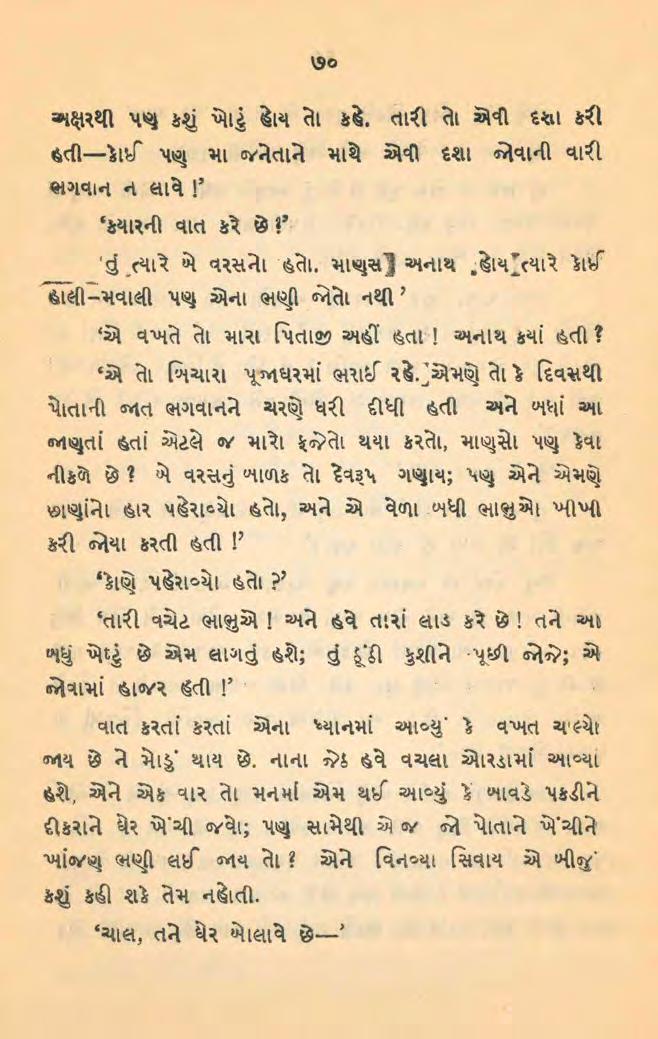 ૭૦
અક્ષરથી પણ કશું ખોટું હોય તો કહે. તારી તો એવી દશા કરી
હતી—કોઈ પણ મા જનેતાને માથે એવી દશા જોવાની વારી
ભગવાન ન લાવે !’
‘ક્યારની વાત કરે છે !’
‘તું ત્યારે બે વરસનો હતો. માણસ અનાથ હોય ત્યારે કોઈ
હાલી–મવાલી પણ એના ભણી જોતો નથી’
‘એ વખતે તો મારા પિતાજી અહીં હતા ! અનાથ કયાં હતી ?
‘એ તો બિચારા પૂજાઘરમાં ભરાઈ રહે. એમણે તો કે દિવસથી
પોતાની જાત ભગવાનને ચરણે ધરી દીધી હતી અને બધાં આ
જાણતાં હતાં એટલે જ મારો ફજેતો થયા કરતો, માણસો પણ કેવા
નીકળે છે ? બે વરસનું બાળક તો દેવરૂપ ગણાય; પણ એને એમણે
છાણાંનો હાર પહેરાવ્યો હતો, અને એ વેળા બધી ભાભુઓ ખીખી
કરી જોયા કરતી હતી !’
‘કોણે પહેરાવ્યો હતો ?’
‘તારી વચેટ ભાભુએ ! અને હવે તારાં લાડ કરે છે ! તને આ
બધું ખોટું છે એમ લાગતું હશે; તું ડૂંડી કુશીને પૂછી જોજે; એ
જોવામાં હાજર હતી !’
વાત કરતાં કરતાં એના ધ્યાનમાં આવ્યું કે વખત ચાલ્યો
જાય છે ને મોડું થાય છે. નાના જેઠ હવે વચલા ઓરડામાં આવ્યા
હશે, એને એક વાર તો મનમાં એમ થઈ આવ્યું કે બાવડે પકડીને
દીકરાને ઘેર ખેંચી જવો; પણ સામેથી એ જ જો પોતાને ખેંચીને
ખાંજણ ભણી લઈ જાય તો ? એને વિનવ્યા સિવાય એ બીજું
કશું કહી શકે તેમ નહોતી.
‘ચાલ, તને ઘેર બોલાવે છે—’